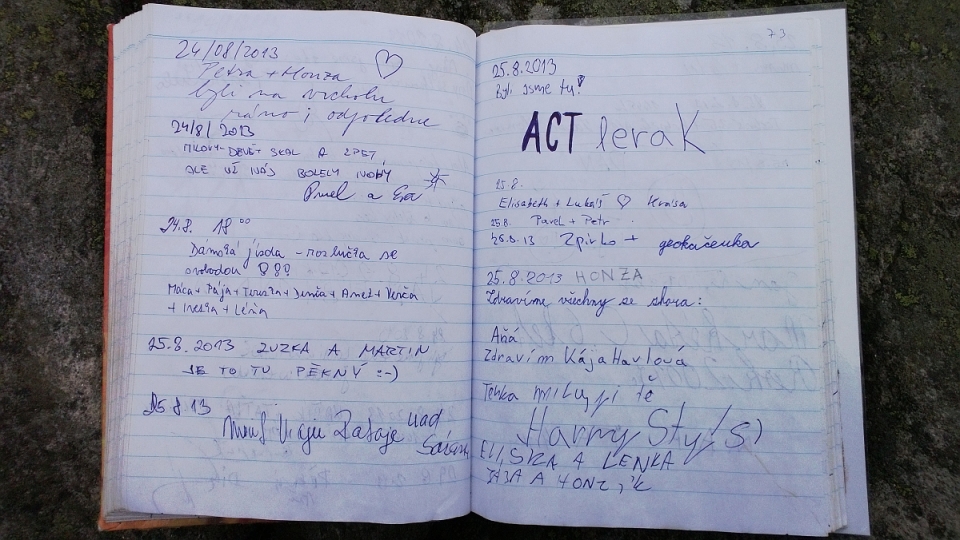 24/08/2013
Petra + Honza
byli na vrcholu
ráno i odpoledne
24/8/ 2013
MILOVY-DEVĚT SKAL A ZPĚT,
ALE UŽ NÁS BOLELY NOHY
Pavel a Eva
24.8. 18 00
Dámská jízda - rozlučka se
svobodou
Máca + Pája + Terezka + Denča + Anet + Verča
+ Ivezka + Léňa
25.8. 2013 ZUZKA A MARTIN
JE TO TU PĚKNÝ :-)
25 8 13
nad
73
25.8.2013
Byli jsme tu!
ACT lerak
25.8.
Elisabeth + Lukáš ♡ Hrnsa
25.8. Pavel + Petr
25.8.13 Zpirko + geokačenka
25.8.2013 HONZA
Zdravíme všechny ze shora:
Zdravím Kája Havlová
Terka miluji tě
Harry Styls)
ELIŠKA A LENKA